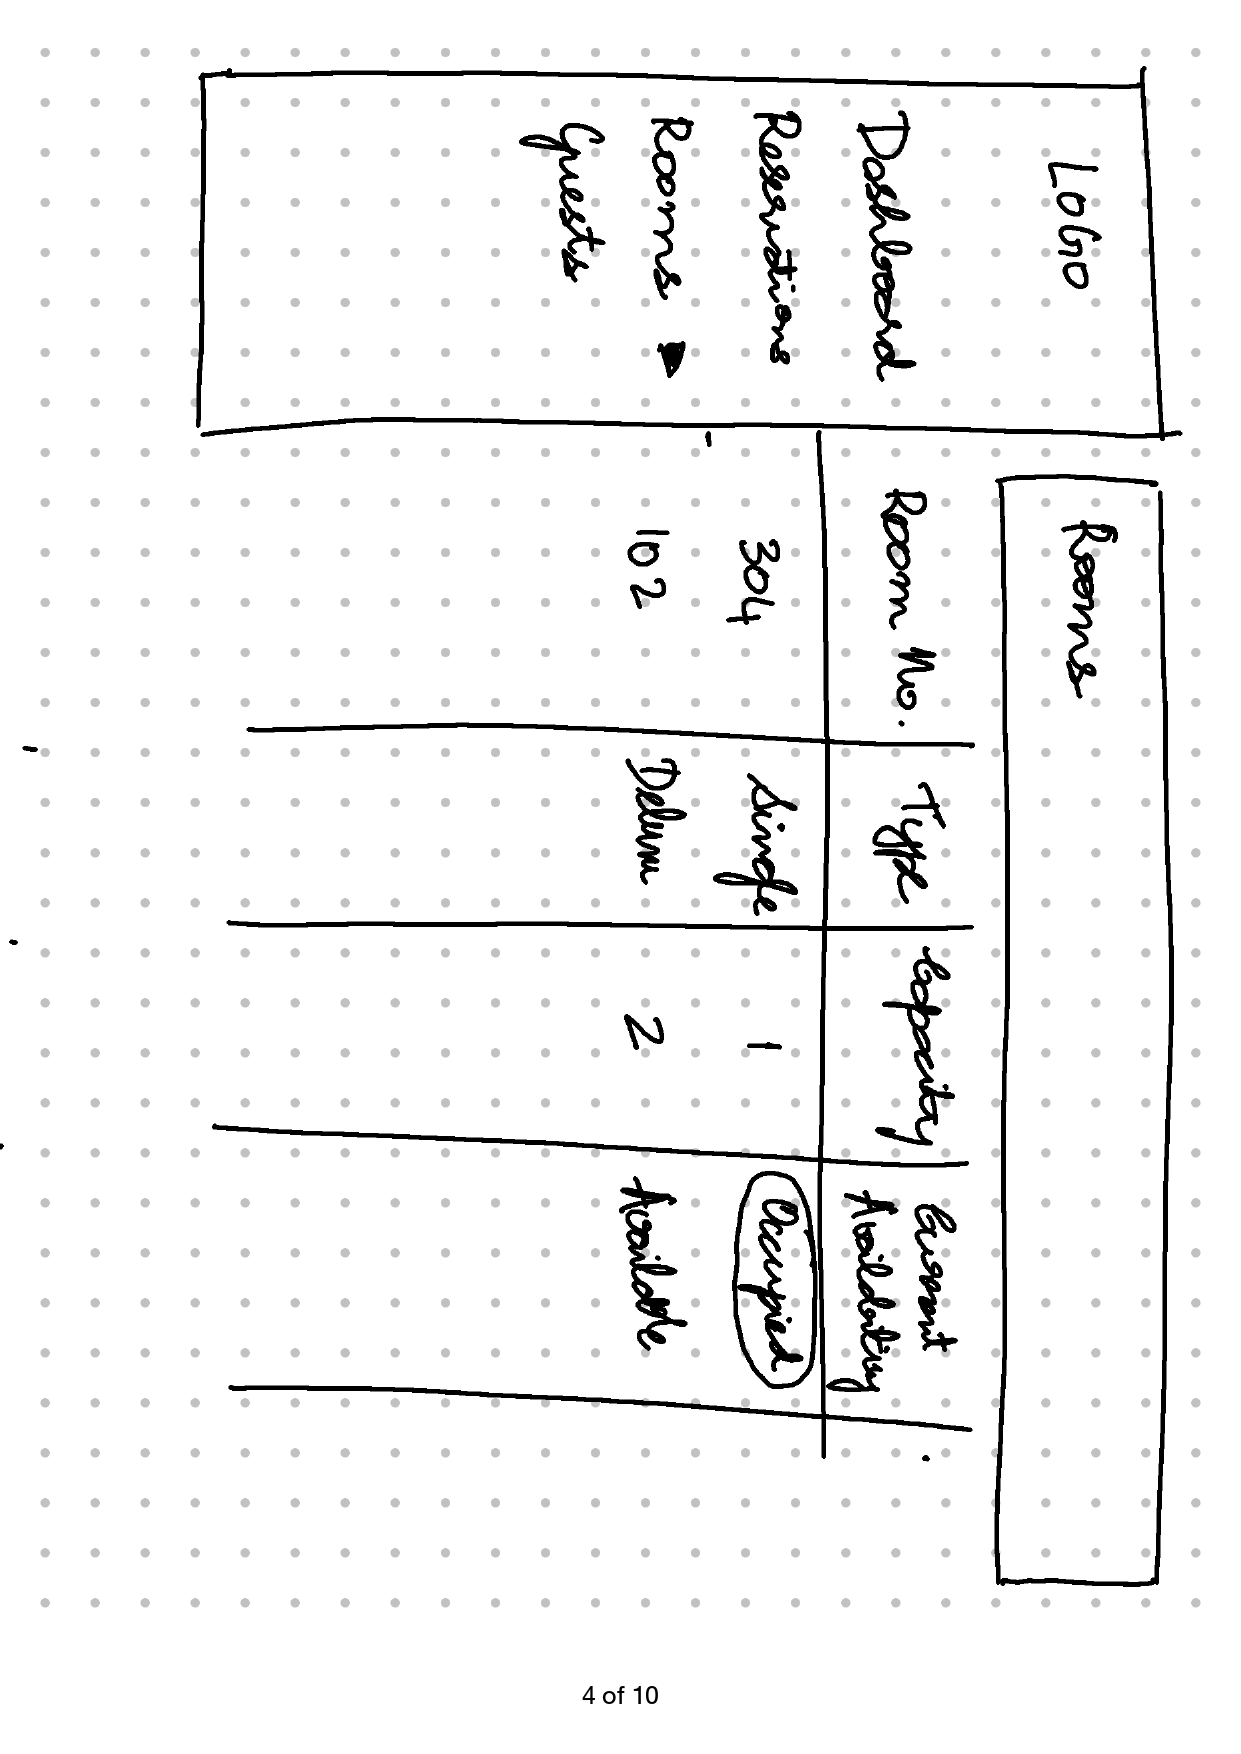 LOGO
Dashboard
Reservations
Rooms
Guests
Rooms
Room No. Type Capacity Current Availability
304 Single 1 Occupied
102 Deluxe 2 Available
4 of 10